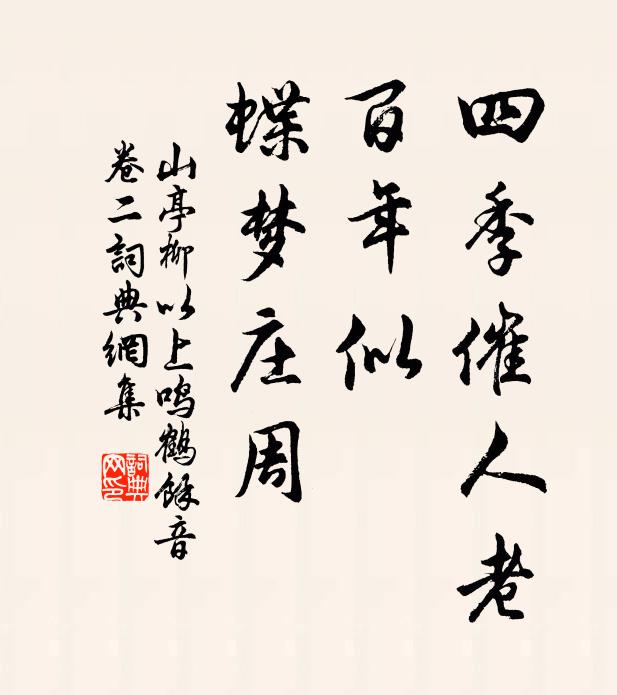 四季催人老
百年似
蝶梦庄周
山亭柳以上鸣鹤馀音
卷二詞典網集
詞典
网印